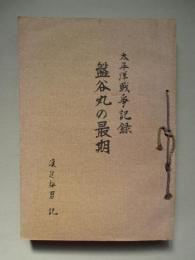 太平洋戦争記録
盤谷丸の最期
記